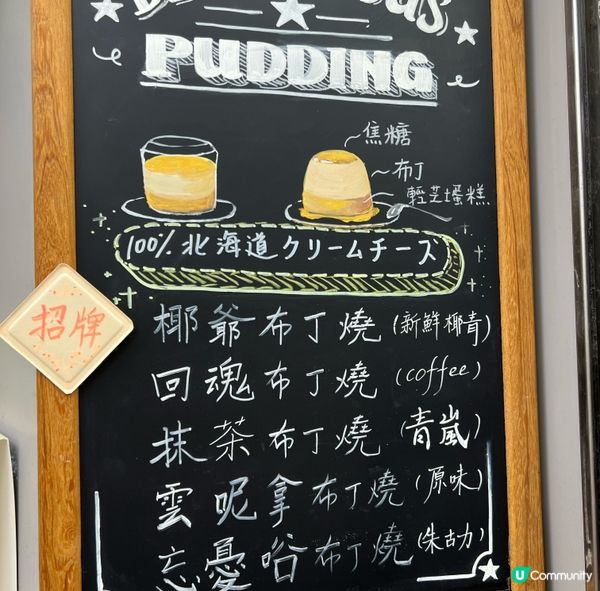 PUDDING
焦糖
布丁
輕芝士蛋糕
100% 北海道クリームチーズ
招牌
椰爺布丁燒 (新鮮椰青)
回魂布丁燒 (coffee)
抹茶布丁燒 (青嵐)
雲呢拿布丁燒 (原味)
忘憂咗布丁燒 (朱古力)
U Community